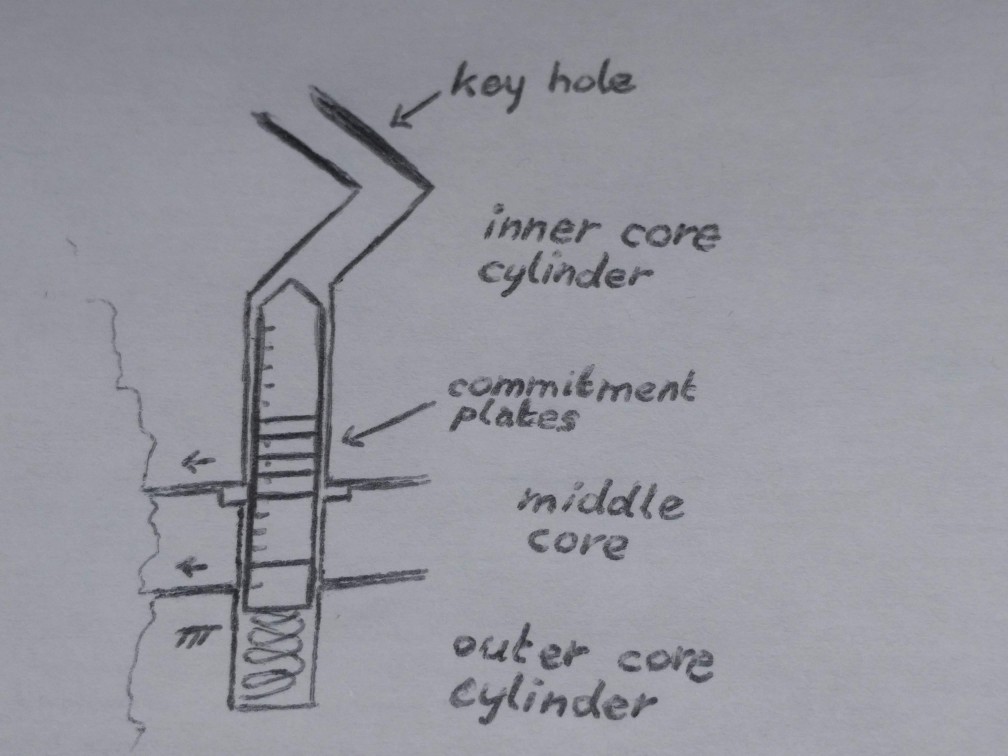 key hole
inner core
cylinder
commitment
plates
middle
core
outer core
cylinder